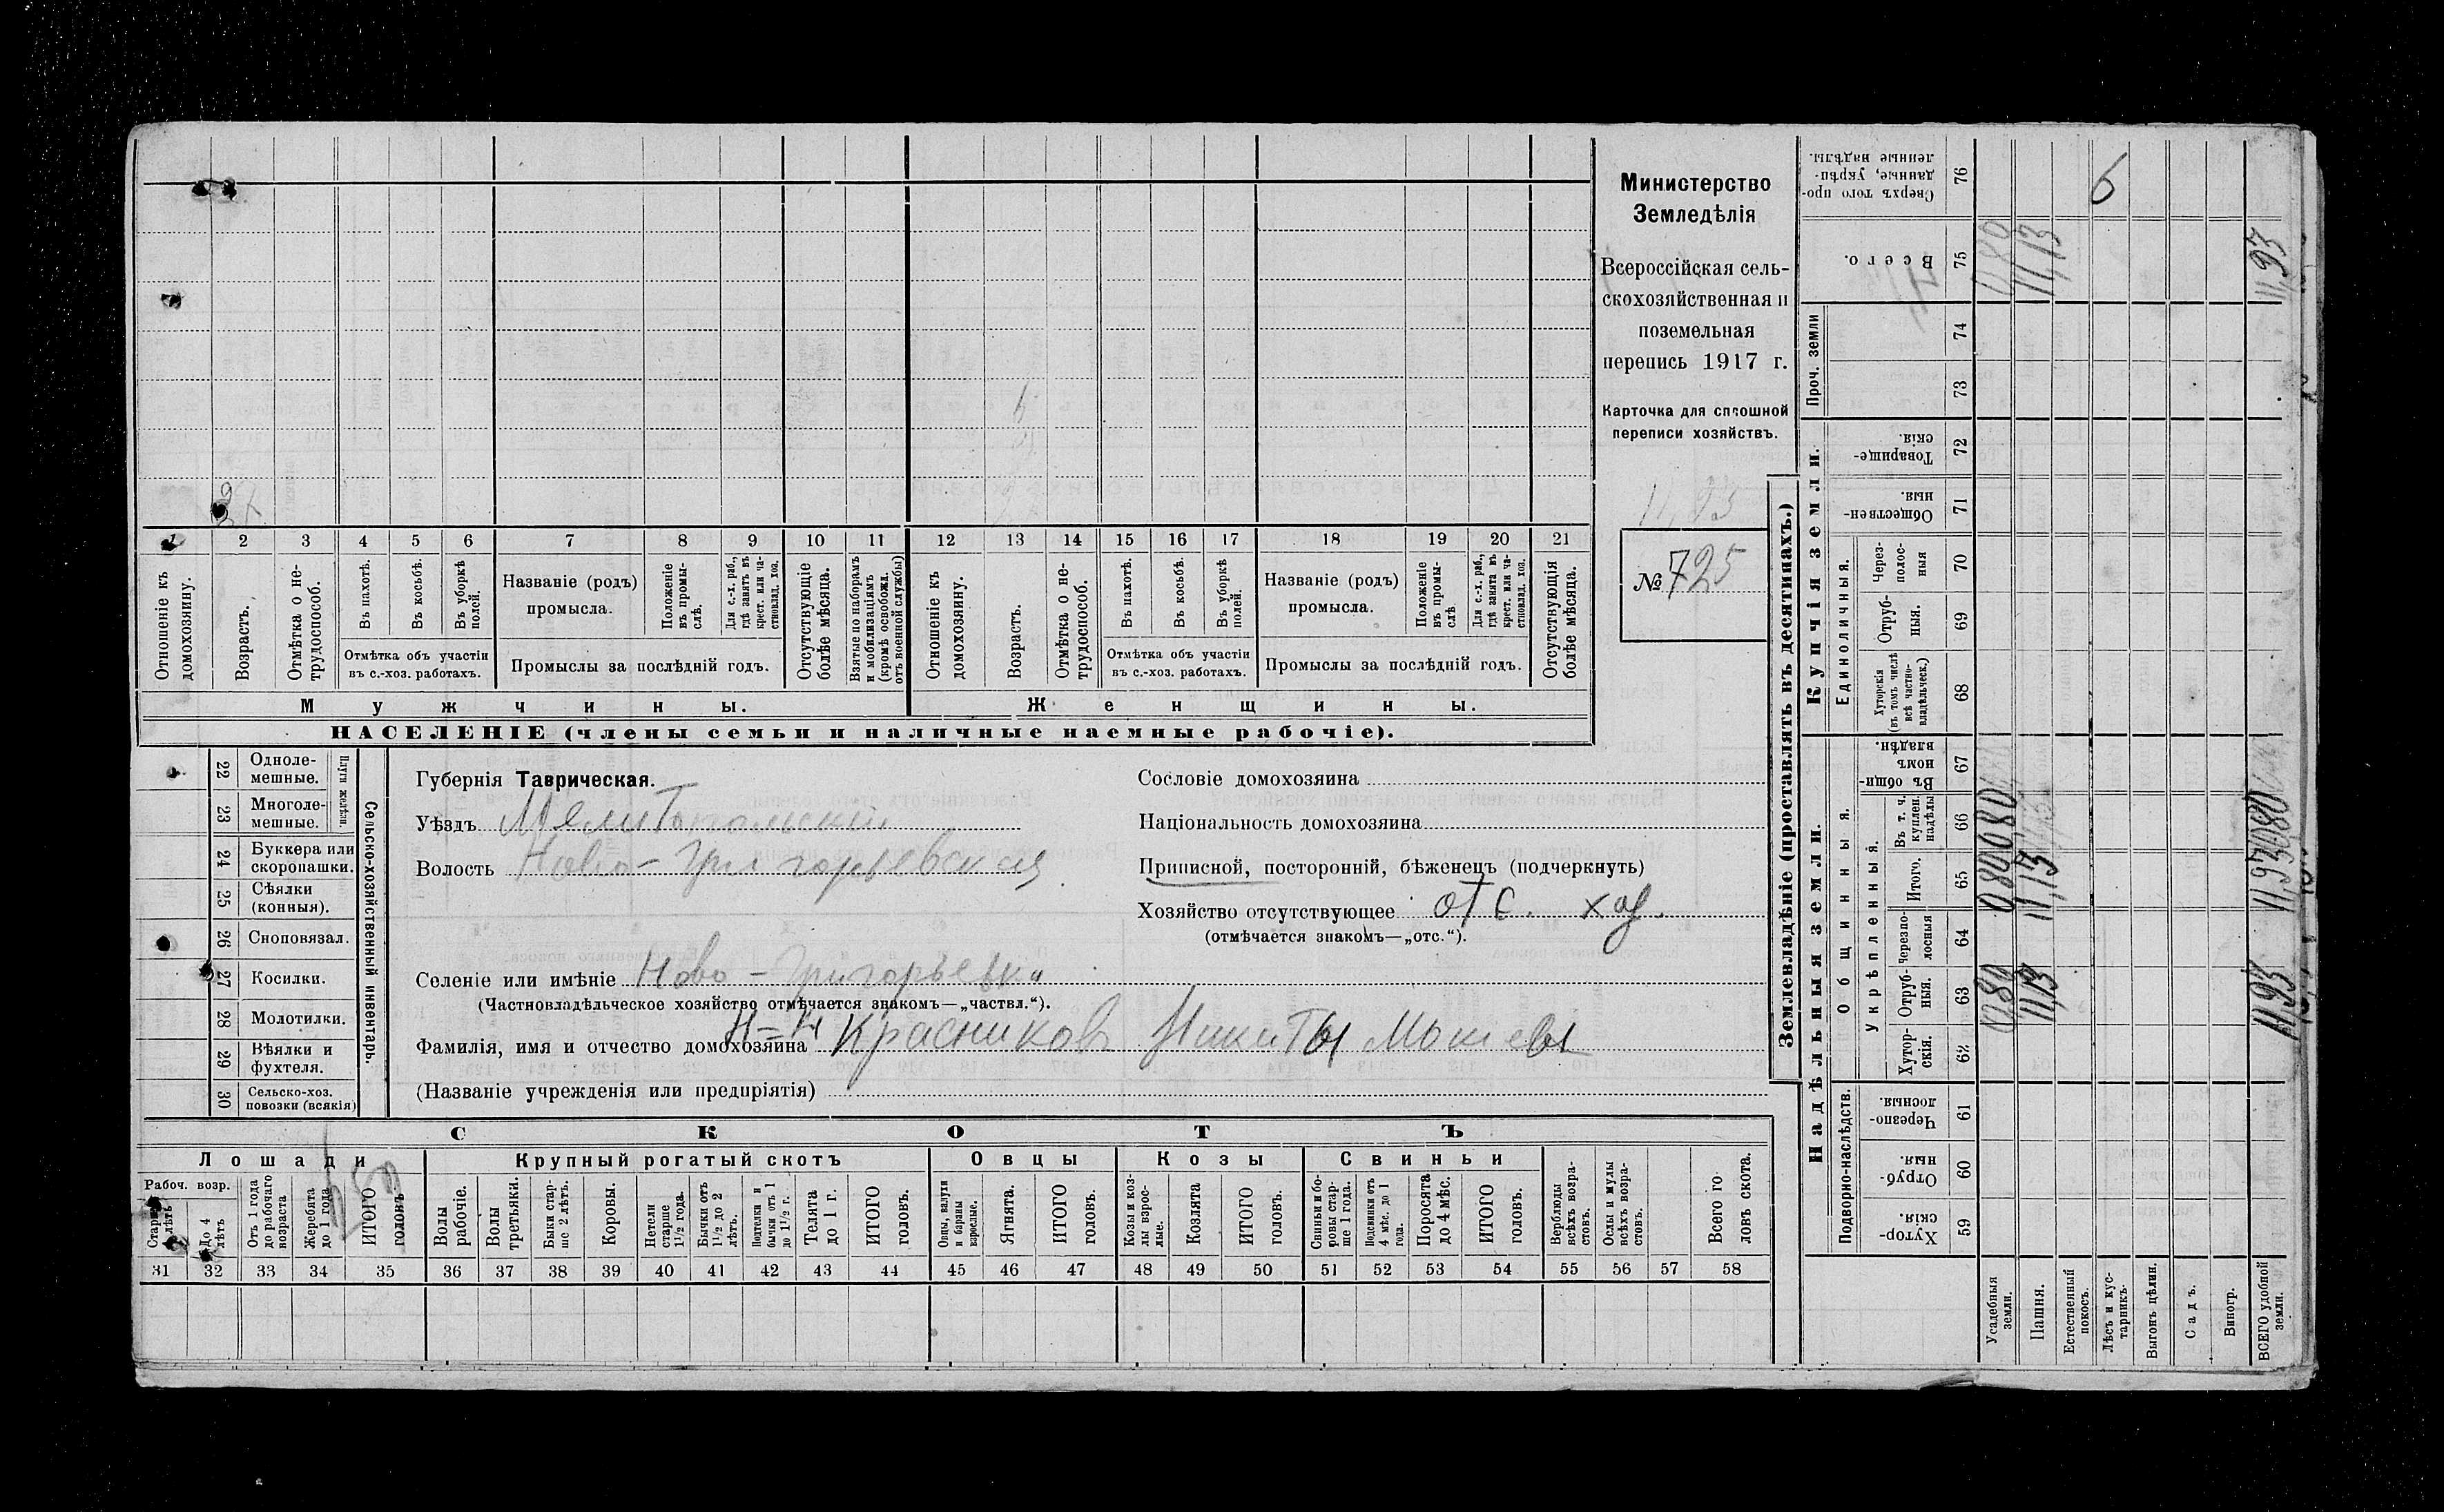 Министерство
Земледѣлія
Всероссійская сель-
скохозяйственная и
поземельная
перепись 1917 г.
Карточка для сплошной
переписи хозяйствъ.
11,93
№ 725
1 2 3 4 5 6 7 8 9 10 11 12 13 14 15 16 17 18 19 20 21
Отношеніе къ домохозяину.
Возрастъ.
Отмѣтка о не-трудоспособ.
Въ пахотѣ.
Въ косьбѣ.
Въ уборкѣ полей.
Отмѣтка объ участіи
въ с.-хоз. работахъ.
Названіе (родъ)
промысла.
Положеніе въ промы-слѣ.
Для с.-х. раб., гдѣ занятъ въ крест. или ча-стновлад. хоз.
Промыслы за послѣдній годъ.
Отсутствующіе болѣе мѣсяца.
Взятые по наборамъ и мобилизаціямъ (кромѣ освобожд. отъ военной службы)
Отношеніе къ домохозяину.
Возрастъ.
Отмѣтка о не-трудоспособ.
Въ пахотѣ.
Въ косьбѣ.
Въ уборкѣ полей.
Отмѣтка объ участіи
въ с.-хоз. работахъ.
Названіе (родъ)
промысла.
Положеніе въ промы-слѣ
Для с.-х. раб., гдѣ занята въ крест. или ча-стновлад. хоз.
Промыслы за послѣдній годъ.
Отсутствующія болѣе мѣсяца.
Мужчины.
Женщины.
НАСЕЛЕНІЕ (члены семьи и наличные наемные рабочіе).
22 Одноле-мешные.
23 Многоле-мешные.
Плуги желѣзн.
24 Буккера или скоропашки.
25 Сѣялки (конныя).
26 Сноповязал.
27 Косилки.
28 Молотилки.
29 Вѣялки и фухтеля.
30 Сельско-хоз. повозки (всякія)
Сельско-хозяйственный инвентарь.
Губернія Таврическая.
Уѣздъ Мелитопольскій
Волость Ново-Григорьевская
Селеніе или имѣніе Ново-Григорьевка
(Частновладѣльческое хозяйство отмѣчается знакомъ—„частвл.“).
Н-н
Фамилія, имя и отчество домохозяина Красниковъ Никиты
(Названіе учрежденія или предпріятія)
Сословіе домохозяина
Національность домохозяина
Приписной, посторонній, бѣженецъ (подчеркнуть)
Хозяйство отсутствующее отс. хоз.
(отмѣчается знакомъ—„отс.“).
СКОТЪ
Лошади
Крупный рогатый скотъ
Овцы
Козы
Свиньи
Рабоч. возр.
Старше 4 лѣтъ
До 4 лѣтъ
Отъ 1 года до рабочаго возраста
Жеребята до 1 года
ИТОГО головъ
Волы рабочіе.
Волы третьяки.
Быки стар-ше 2 лѣтъ.
Коровы.
Нетели старше 1½ года.
Бычки отъ 1½ до 2 лѣтъ.
Подтелки и бычки отъ 1 до 1½ г.
Телята до 1 г.
ИТОГО головъ.
Овцы, валухи и бараны взрослые.
Ягнята.
ИТОГО головъ.
Козы и коз-лы взрос-лые.
Козлята
ИТОГО головъ.
Свиньи и бо-ровы стар-ше 1 года.
Подсвинки отъ 4 мѣс. до 1 года.
Поросята до 4 мѣс.
ИТОГО головъ.
Верблюды всѣхъ возра-стовъ.
Ослы и мулы всѣхъ возра-стовъ.
Всего го-ловъ скота.
31 32 33 34 35 36 37 38 39 40 41 42 43 44 45 46 47 48 49 50 51 52 53 54 55 56 57 58
Землевладѣніе (проставлять въ десятинахъ.)
Надѣльныя земли.
Купчія земли.
Проч. земли
Подворно-наслѣдств.
Общинныя.
Укрѣпленныя.
Единоличныя.
Хутор-скія. 59
Отруб-ныя. 60
Черезпо-лосныя. 61
Хутор-скія. 62
Отруб-ныя. 63
Черезпо-лосныя 64
Итого. 65
Въ т. ч. куплен. надѣлы 66
Въ общи-номъ владѣн. 67
Хуторскія (въ томъ числѣ всѣ частно-владѣльческ.) 68
Отруб-ныя. 69
Через-полос-ныя 70
Обществен-ныя. 71
Товарище-скія. 72
73
74
Всего. 75
Сверхъ того про-данные, укрѣп-ленные надѣлы. 76
Усадебныя земли.
Пашня. 11,13 11,13 11,13
Естественный покосъ.
Лѣсъ и кус-тарникъ. 6
Выгонъ цѣлин.
Садъ.
Виногр.
ВСЕГО удобной земли. 11,93 11,93 11,93